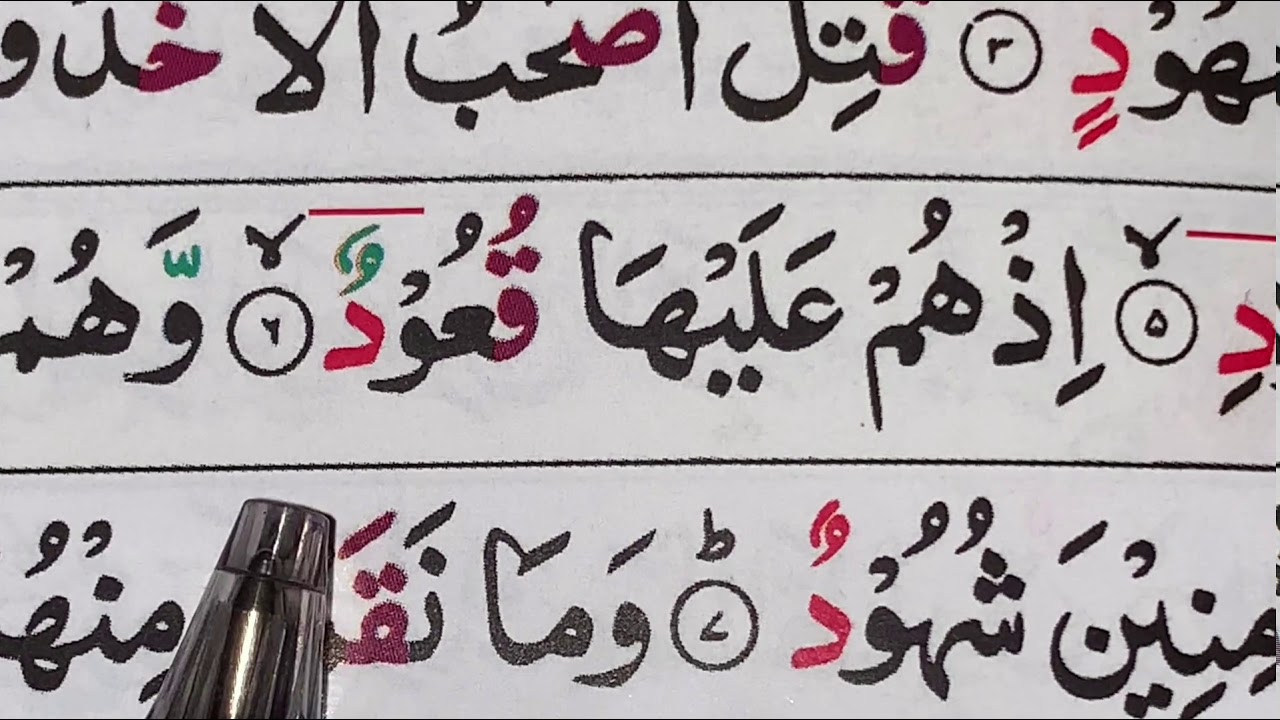 هُوْدٍ ۝۳ قُتِلَ اَصْحٰبُ الْاُخْدُو
دِ ۝۵ ۙ اِذْ هُمْ عَلَيْهَا قُعُوْدٌ ۝۶ ۙ وَّهُمْ
مِنِيْنَ شُهُوْدٌ ۝۷ ؕ وَمَا نَقَ مِنْهُ